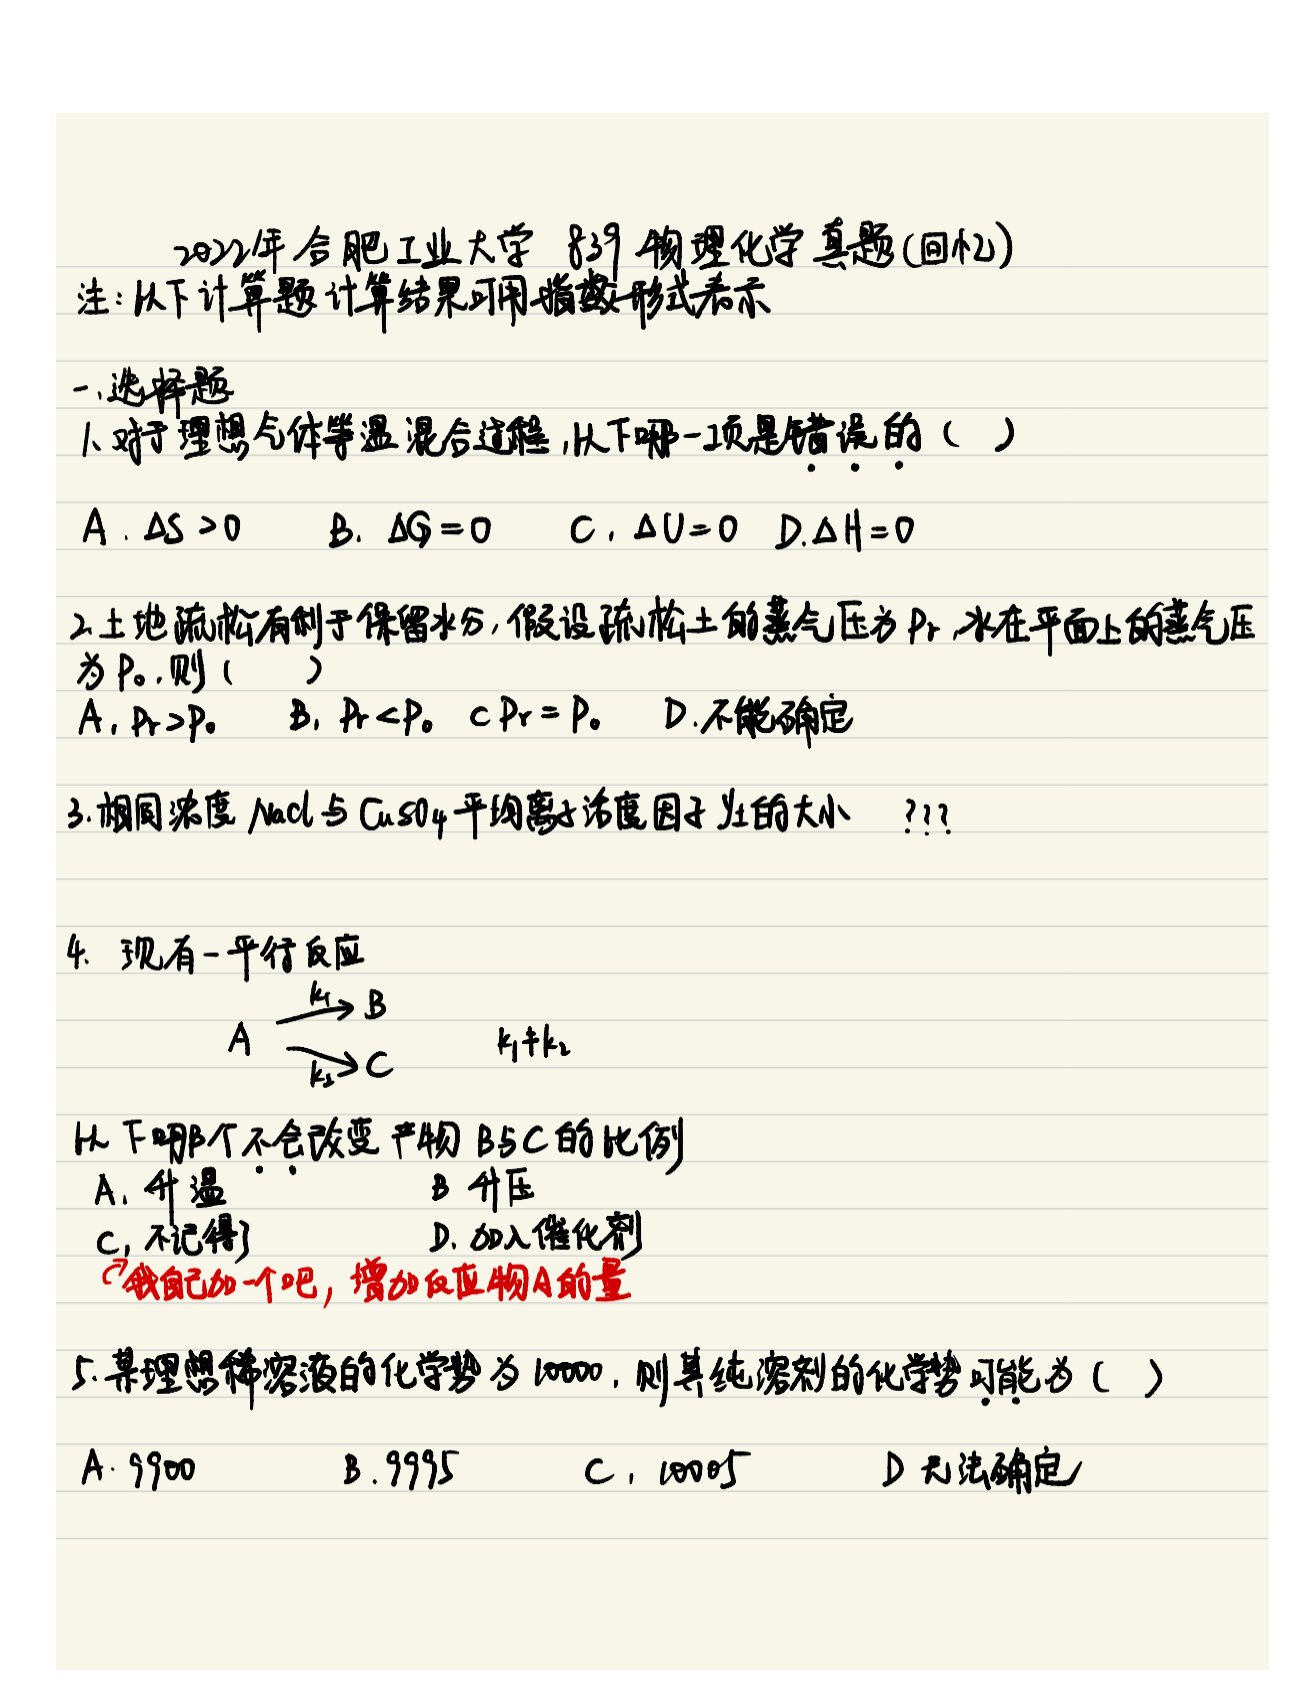 2022年合肥工业大学 839 物理化学真题(回忆)
注:以下计算题计算结果可用指数形式表示
一、选择题
1、对于理想气体等温混合过程,以下哪一项是错误的( )
A. ΔS>0 B. ΔG=0 C. ΔU=0 D. ΔH=0
2、土地疏松有利于保留水分,假设疏松土的蒸气压为Pr,水在平面上的蒸气压
为P₀,则( )
A. Pr>P₀ B. Pr<P₀ C Pr=P₀ D.不能确定
3.相同浓度 NaCl与CuSO₄平均离子活度因子γ±的大小 ???
4. 现有一平行反应
k₁ B
A k₁≠k₂
k₂ C
以下哪个不会改变产物B与C的比例
A. 升温 B 升压
C, 不记得了 D. 加入催化剂
我自己加一个吧,增加反应物A的量
5.某理想稀溶液的化学势为10000,则其纯溶剂的化学势可能为( )
A. 9900 B. 9995 C. 10005 D 无法确定